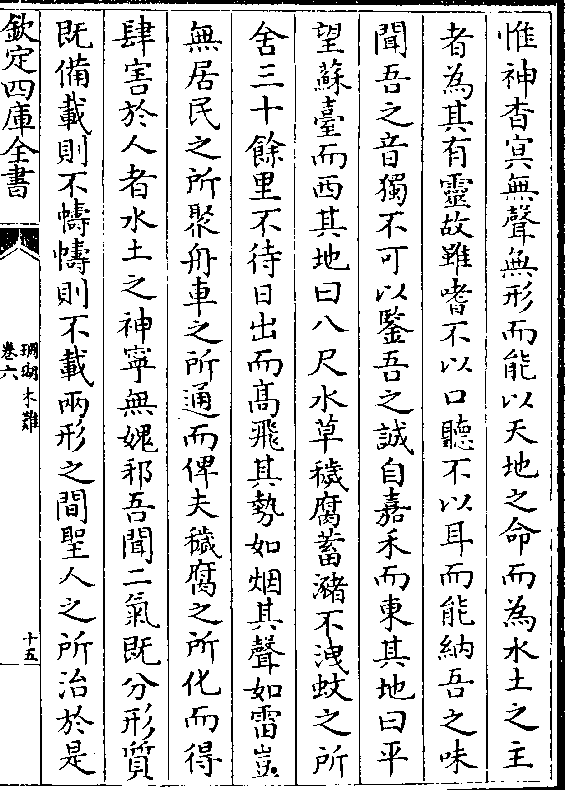 惟神杳冥無聲無形而能以天地之命而為水土之主
者為其有靈故雖嗜不以口聽不以耳而能納吾之味
聞吾之音獨不可以鑒吾之誠自嘉禾而東其地曰平
望蘇臺而西其地曰八尺水草穢腐蓄瀦不洩蚊之所
舍三十餘里不待日出而髙飛其勢如烟其聲如雷豈
無居民之所聚舟車之所通而俾夫穢腐之所化而得
肆害於人者水土之神寧無媿邪吾聞二氣既分形質
既備載則不幬幬則不載兩形之間聖人之所治於是
欽定四庫全書
珊瑚木難
卷六
十五